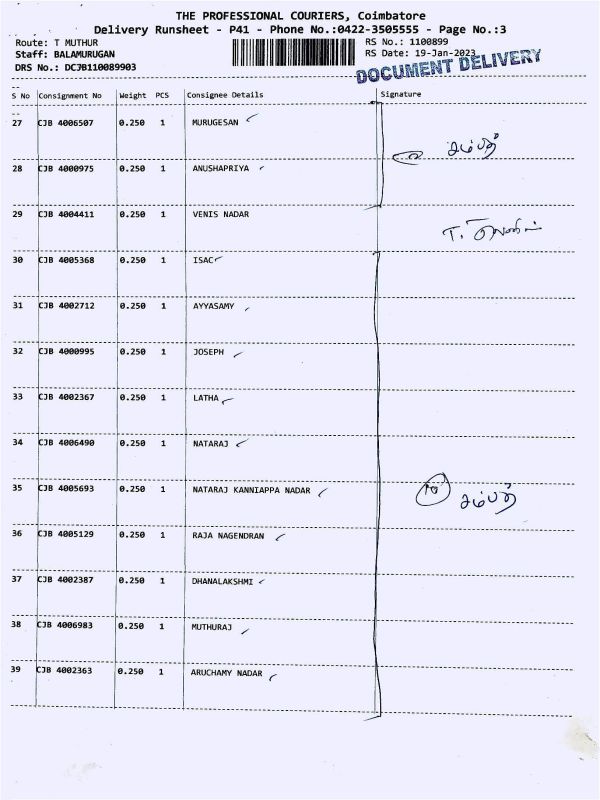 THE PROFESSIONAL COURIERS, Coimbatore
Delivery Runsheet - P41 - Phone No.:0422-3505555 - Page No.:3
Route: T MUTHUR RS No.: 1100899
Staff: BALAMURUGAN RS Date: 19-Jan-2023
DRS No.: DCJB110089903
DOCUMENT DELIVERY
S No Consignment No Weight PCS Consignee Details Signature
27 CJB 4006507 0.250 1 MURUGESAN
சம்பத்
28 CJB 4000975 0.250 1 ANUSHAPRIYA
29 CJB 4004411 0.250 1 VENIS NADAR
T.
30 CJB 4005368 0.250 1 ISAC
31 CJB 4002712 0.250 1 AYYASAMY
32 CJB 4000995 0.250 1 JOSEPH
33 CJB 4002367 0.250 1 LATHA
34 CJB 4006490 0.250 1 NATARAJ
35 CJB 4005693 0.250 1 NATARAJ KANNIAPPA NADAR
10 சம்பத்
36 CJB 4005129 0.250 1 RAJA NAGENDRAN
37 CJB 4002387 0.250 1 DHANALAKSHMI
38 CJB 4006983 0.250 1 MUTHURAJ
39 CJB 4002363 0.250 1 ARUCHAMY NADAR